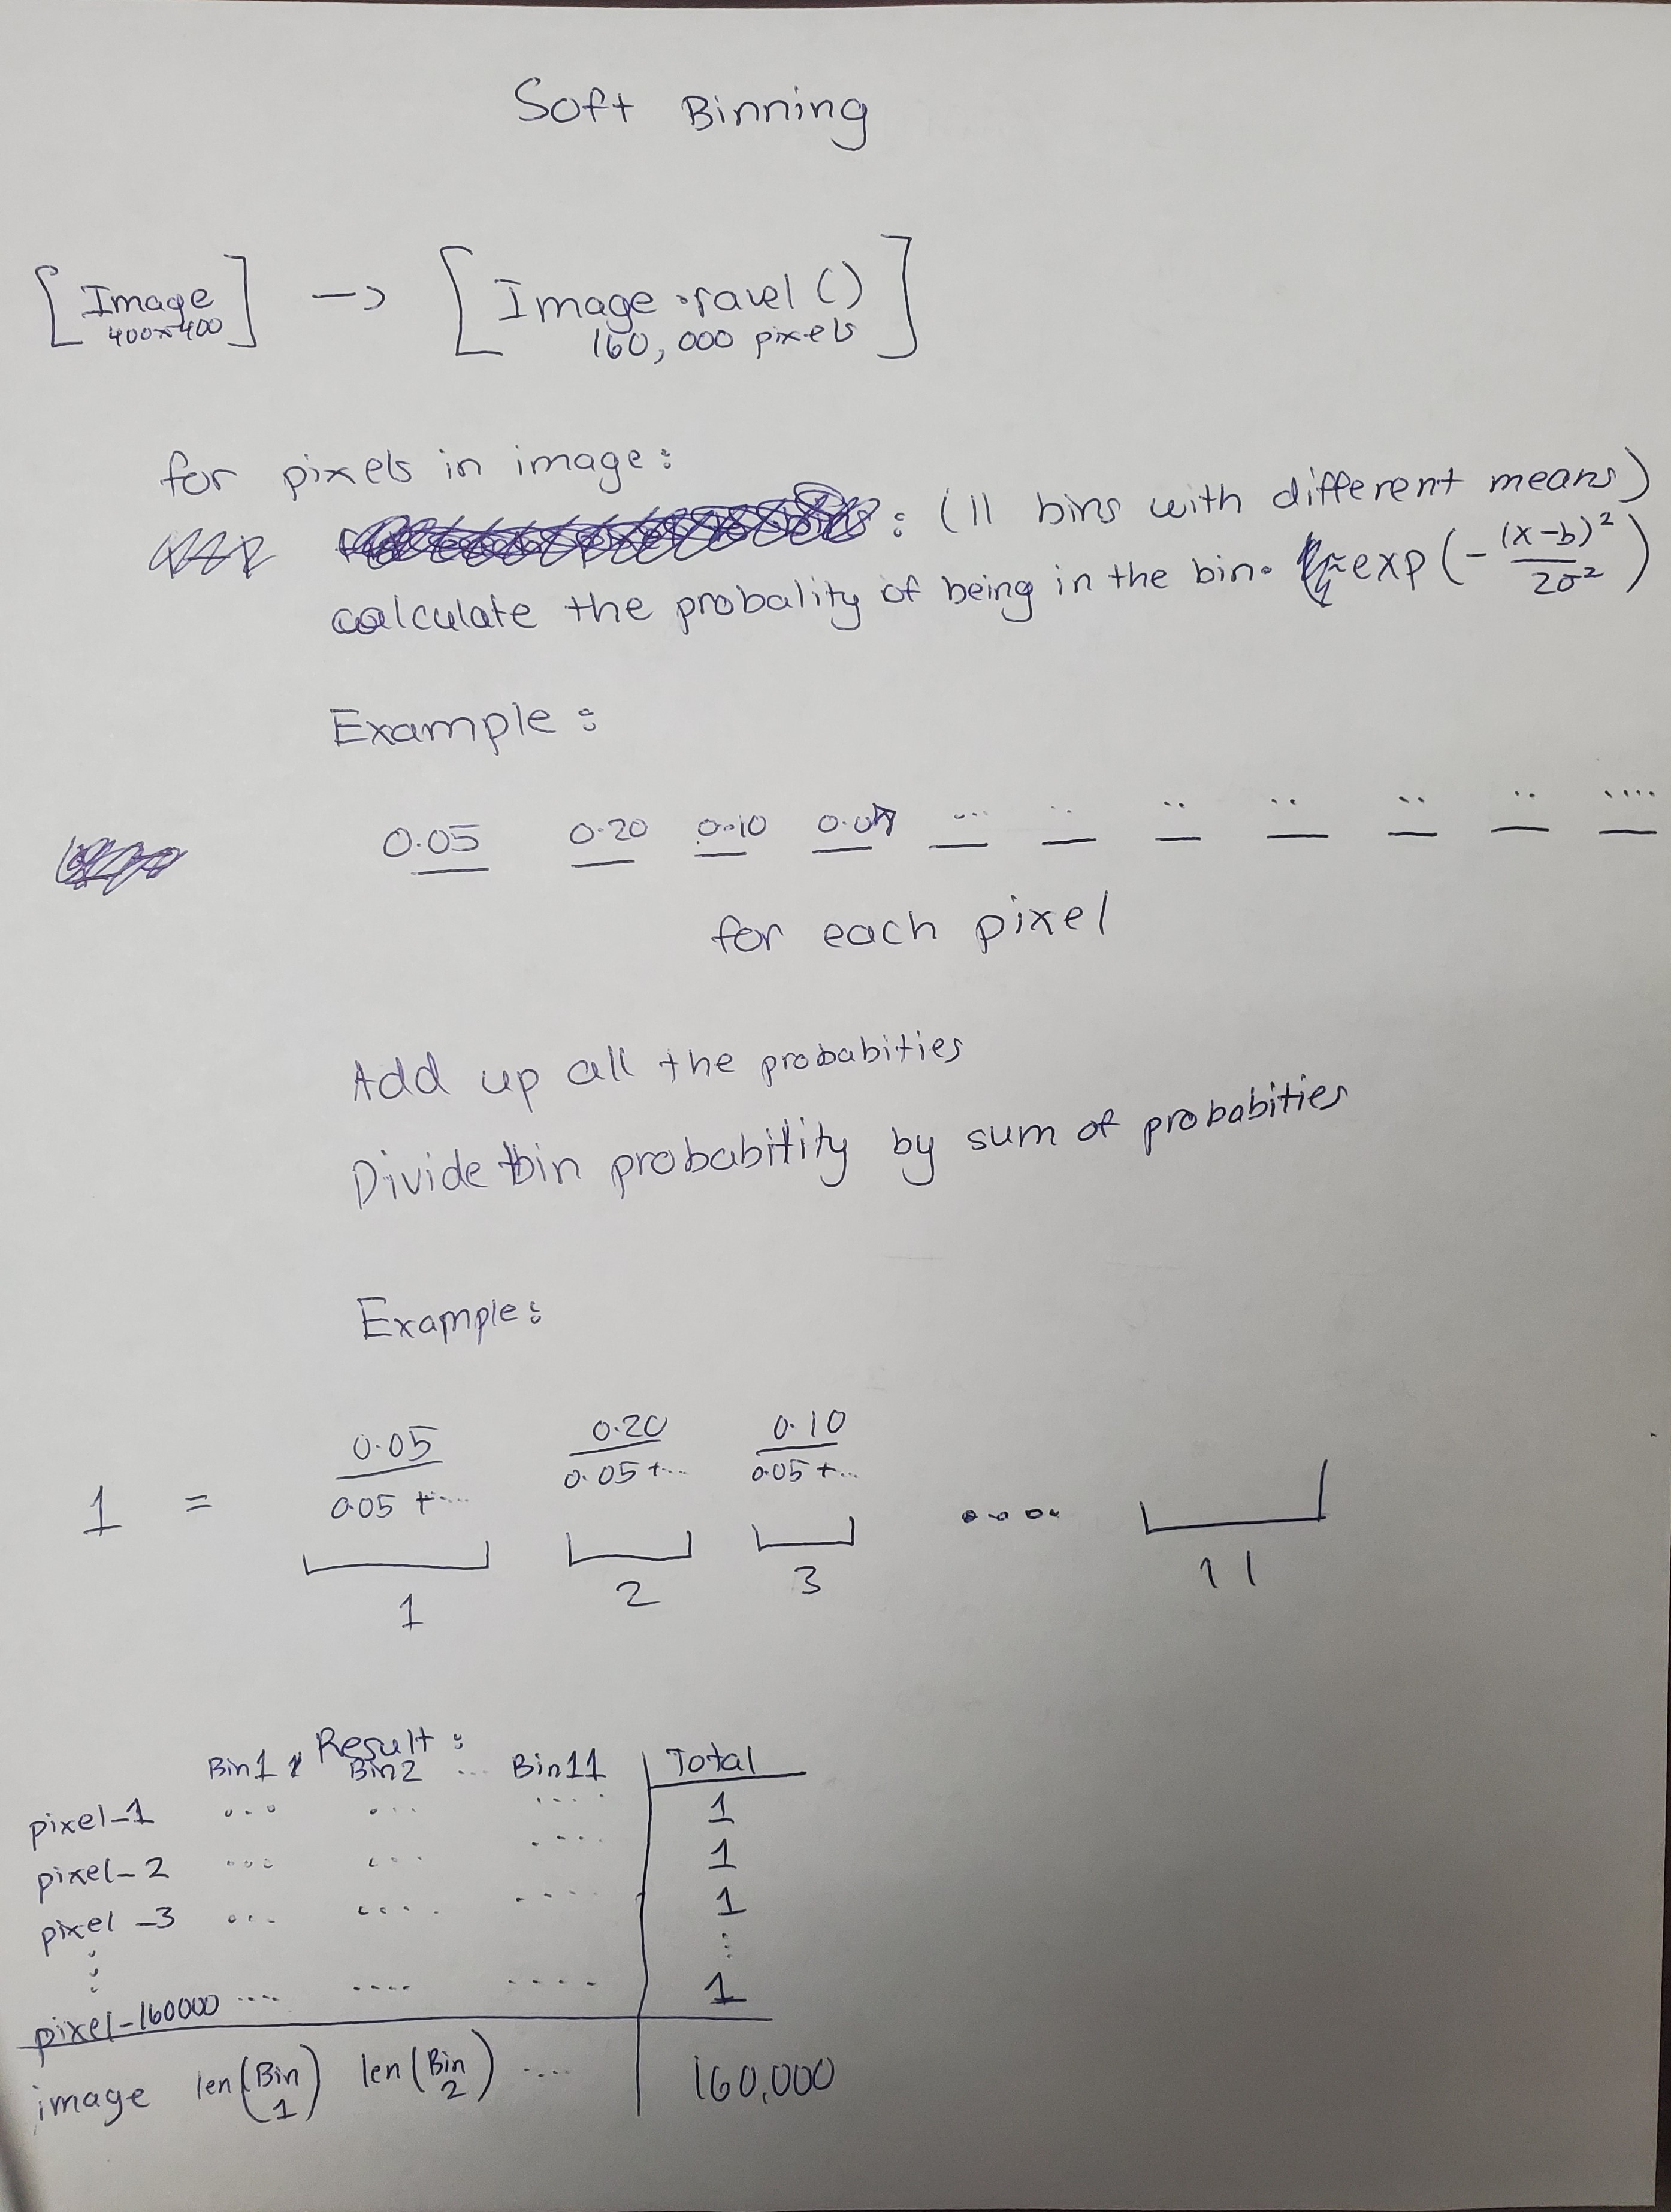 Soft Binning
[Image 400x400] -> [Image.ravel() 160,000 pixels]
for pixels in image:
: (11 bins with different means)
calculate the probality of being in the bin. exp(-(x-b)²/2σ²)
Example:
0.05 0.20 0.10 ... .. .. .. .. .. ....
for each pixel
Add up all the probabities
Divide bin probabitity by sum of probabities
Example:
1 = 0.05/0.05+... 0.20/0.05+... 0.10/0.05+... ....
1 2 3 11
Result:
Bin1 Bin2 ... Bin11 Total
pixel-1 ... ... .... 1
pixel-2 ... ... .... 1
pixel-3 ... .... .... 1
⋮ ⋮
pixel-160000 .... .... .... 1
image len(Bin 1) len(Bin 2) .... 160,000